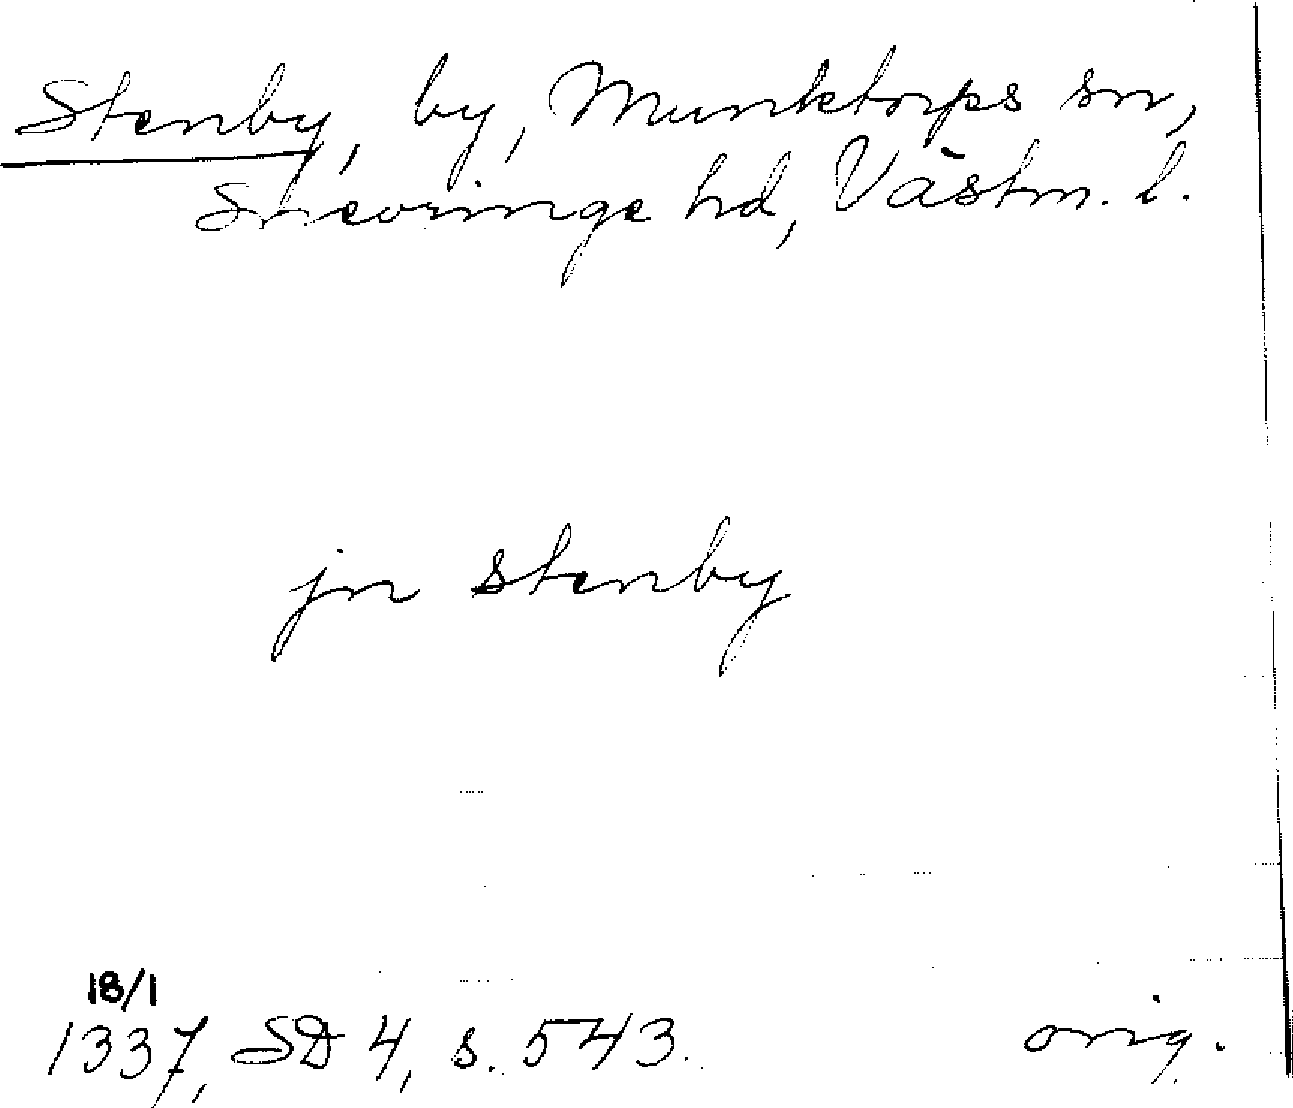 Stenby, by, Munktorps sn,
Snevringe hd, Västm. l.
jn stenby
18/1
1337, SD 4, s. 543. orig.